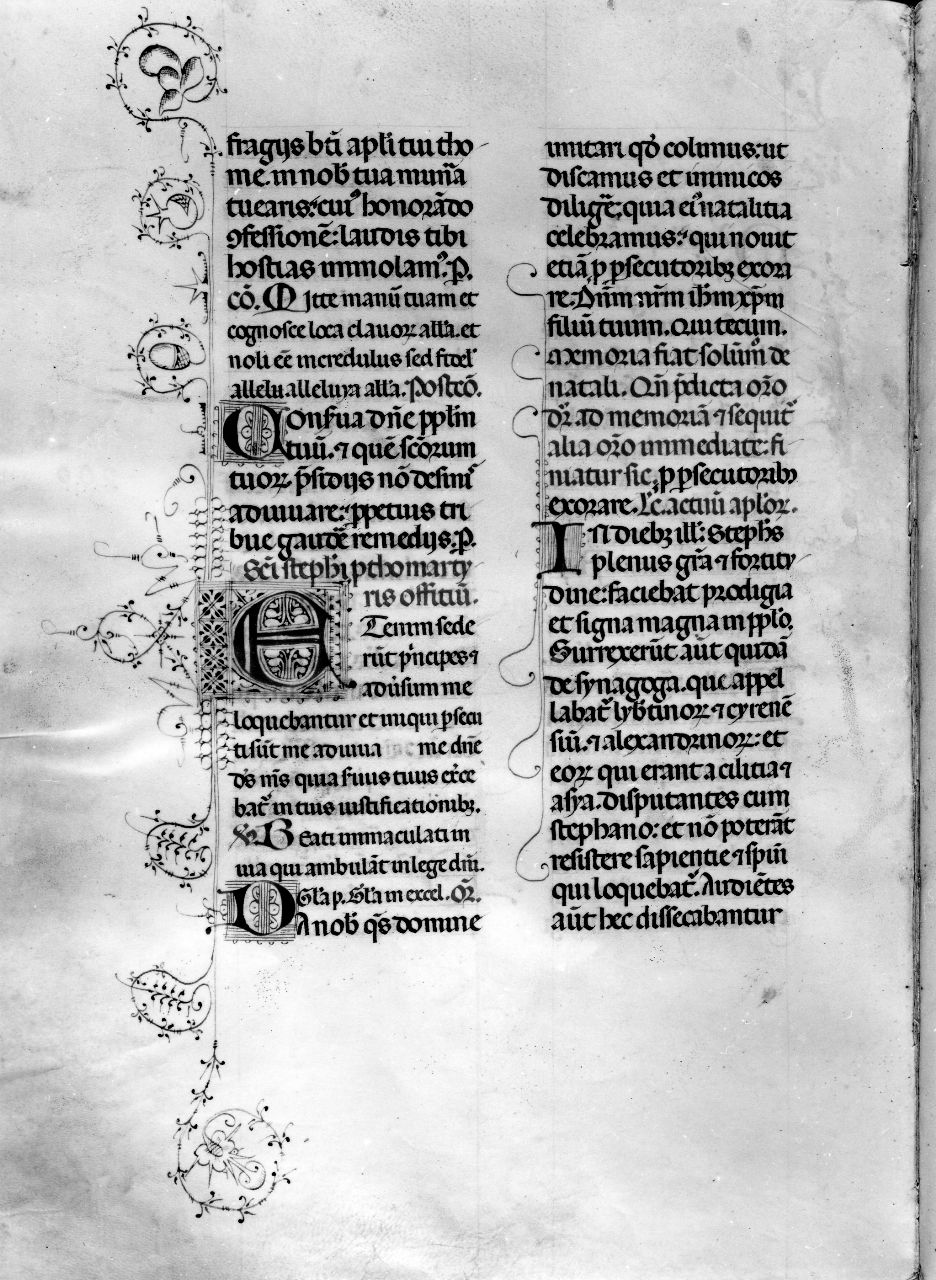 fragijs bti apli tui tho
me. in nob tua mun̄a
tuearis: cuiꝰ honorādo
ꝯfessionē: laudis tibi
hostias immolamꝰ. P.
cō. Mitte manū tuam et
cognosce loca clauoꝝ alla. et
noli eē incredulus sed fidel
allelu. alleluya alla. Postcō.
Conserua dn̄e pplm
tuū. ⁊ quē scōrum
tuoꝝ p̄sidijs nō desinis
adiuuare: ꝑpetuis tri
bue gaudē remedijs. P.
Sci̅ stephi̅ ꝓthomarty
ris offitiū.
Etenim sede
rūt p̄ncipes ⁊
aduersum me
loquebantur et iniqui ꝑsecu
ti sūt me adiuua me dn̄e
ds̄ ms̄ quia seruus tuus ex̄ce
bat̄ in tuis iustificationibꝫ.
Ps̄ Beati immaculati in
uia qui ambulāt in lege dn̄i.
Gl̄a p. Gl̄a in excel. Or̄.
Da nob qs̄ domine
imitari qd̄ colimus: ut
discamus et inimicos
diligē: quia eiꝰ natalitia
celebramus: qui nouit
etiā ꝓ ꝑsecutoribꝫ exora
re. Dn̄m nr̄m ihm̄ xp̄m
filiū tuum. Qui tecum.
maria fiat solum̄ de
natali. Qn̄ p̄dicta or̄o
dr̄ ad memoriā ⁊ sequit̄
alia or̄o immediate: fi
niatur sic. ꝓ ꝑsecutoribꝫ
exorare. Lc̄. actuū apl̓oꝝ.
In diebꝫ ill̓: Stephs̄
plenus gr̄a ⁊ fortitu
dine: faciebat prodigia
et signa magna in pplo.
Surrexerūt aūt quidā
de synagoga. que appel
labat̄ lyb̄tinoꝝ ⁊ cyrenē
siū. ⁊ alexandrinoꝝ: et
eoꝝ qui erant a cilitia ⁊
asya. disputantes cum
stephano: et nō poterāt
resistere sapientie ⁊ spūi
qui loquebat̄. Audiētes
aūt hec dissecabantur